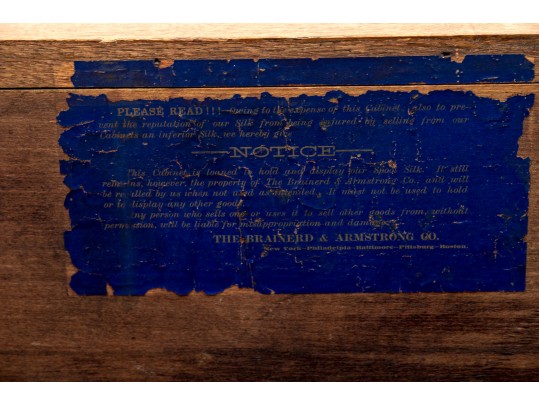 PLEASE READ!!! Owing to the expense of this Cabinet, also to pre-
vent the reputation of our Silk from being injured by selling from our
Cabinets an inferior Silk, we hereby give
NOTICE
This Cabinet is loaned to hold and display our Spool Silk. It still
remains, however, the property of The Brainerd & Armstrong Co. and will
be re alled by us when not used as intended. It must not be used to hold
or to display any other goods
ny person who sells one or uses it to sell other goods from, without
permission, will be liable for misappropriation and damages.
THE BRAINERD & ARMSTRONG CO.
New York—Philadelphia—Baltimore—Pittsburg—Boston.